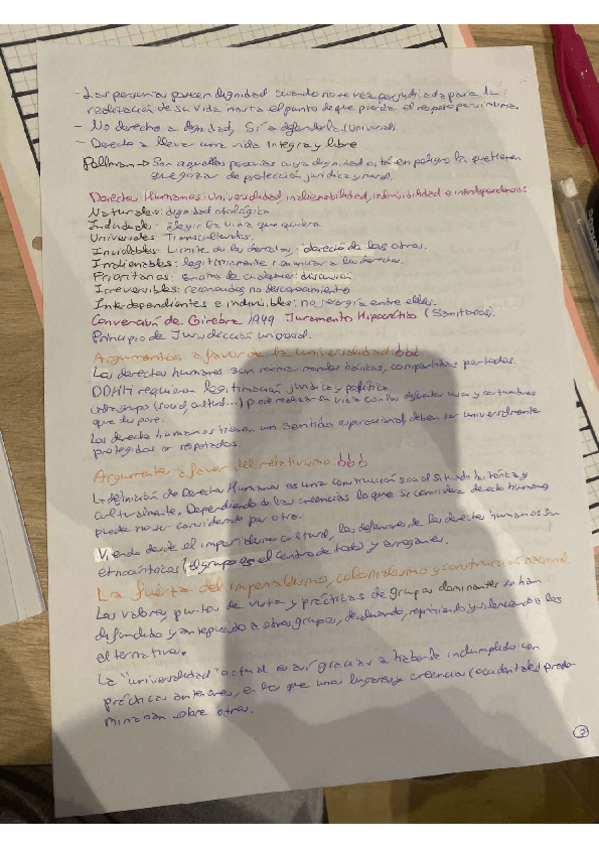 - Las personas poseen dignidad cuando no se ve perjudicada para la
realización de su vida hasta el punto de que pierda el respeto por sí misma.
- No derecho a dignidad, Sí a defenderla (Universal)
- Derecho a llevar una vida íntegra y libre
Pollman → Son aquellas personas cuya dignidad está en peligro las que tienen
que gozar de protección jurídica y moral.
Derechos Humanos: Universalidad, inalienabilidad, indivisibilidad e interdependencia
Naturales: dignidad otológica
Individuales: elegir la vida que quiera
Universales: Transculturales.
Inviolables: Límite de los derechos, derecho de los otros.
Inalienables: legítimamente renunciar a los derechos.
Prioritarios: Encima de cualquier discusión
Irreversibles: reconocidos, no desconocimiento
Interdependientes e indivisibles: no jerarquía entre ellos.
Convención de Ginebra 1949 Juramento Hipocrático (Sanitarios).
Principio de Jurisdicción universal.
Argumentos a favor de la universalidad
Los derechos humanos son normas morales básicas, compartidas por todos.
DDHH requieren legitimación jurídica y política
cada grupo (social, cultural...) puede realizar su vida con los diferentes usos y costumbres
que dispone.
Los derechos humanos tienen un sentido aspiracional, deben ser universalmente
protegidos or respetados.
Argumentos a favor del relativismo
La definición de Derechos Humanos es una construcción social situada histórica y
culturalmente. Dependiendo de las creencias lo que se considera derecho humano
puede no ser considerado por otro.
Viendo desde el imperialismo cultural, los defensores de los derechos humanos son
etnocéntricos (el grupo es el centro de todo) y arrogantes.
La fuerza del imperialismo, colonialismo y construcción nacional.
Los valores, puntos de vista y prácticas de grupos dominantes se han
difundido y antepuesto a otros grupos, devaluando, reprimiendo y violenciando a las
alternativas.
La "universalidad" actual es así gracias a haberse incumplido con
prácticas anteriores, en las que unos lugares y creencias (occidentales) predo-
minaban sobre otros.
3